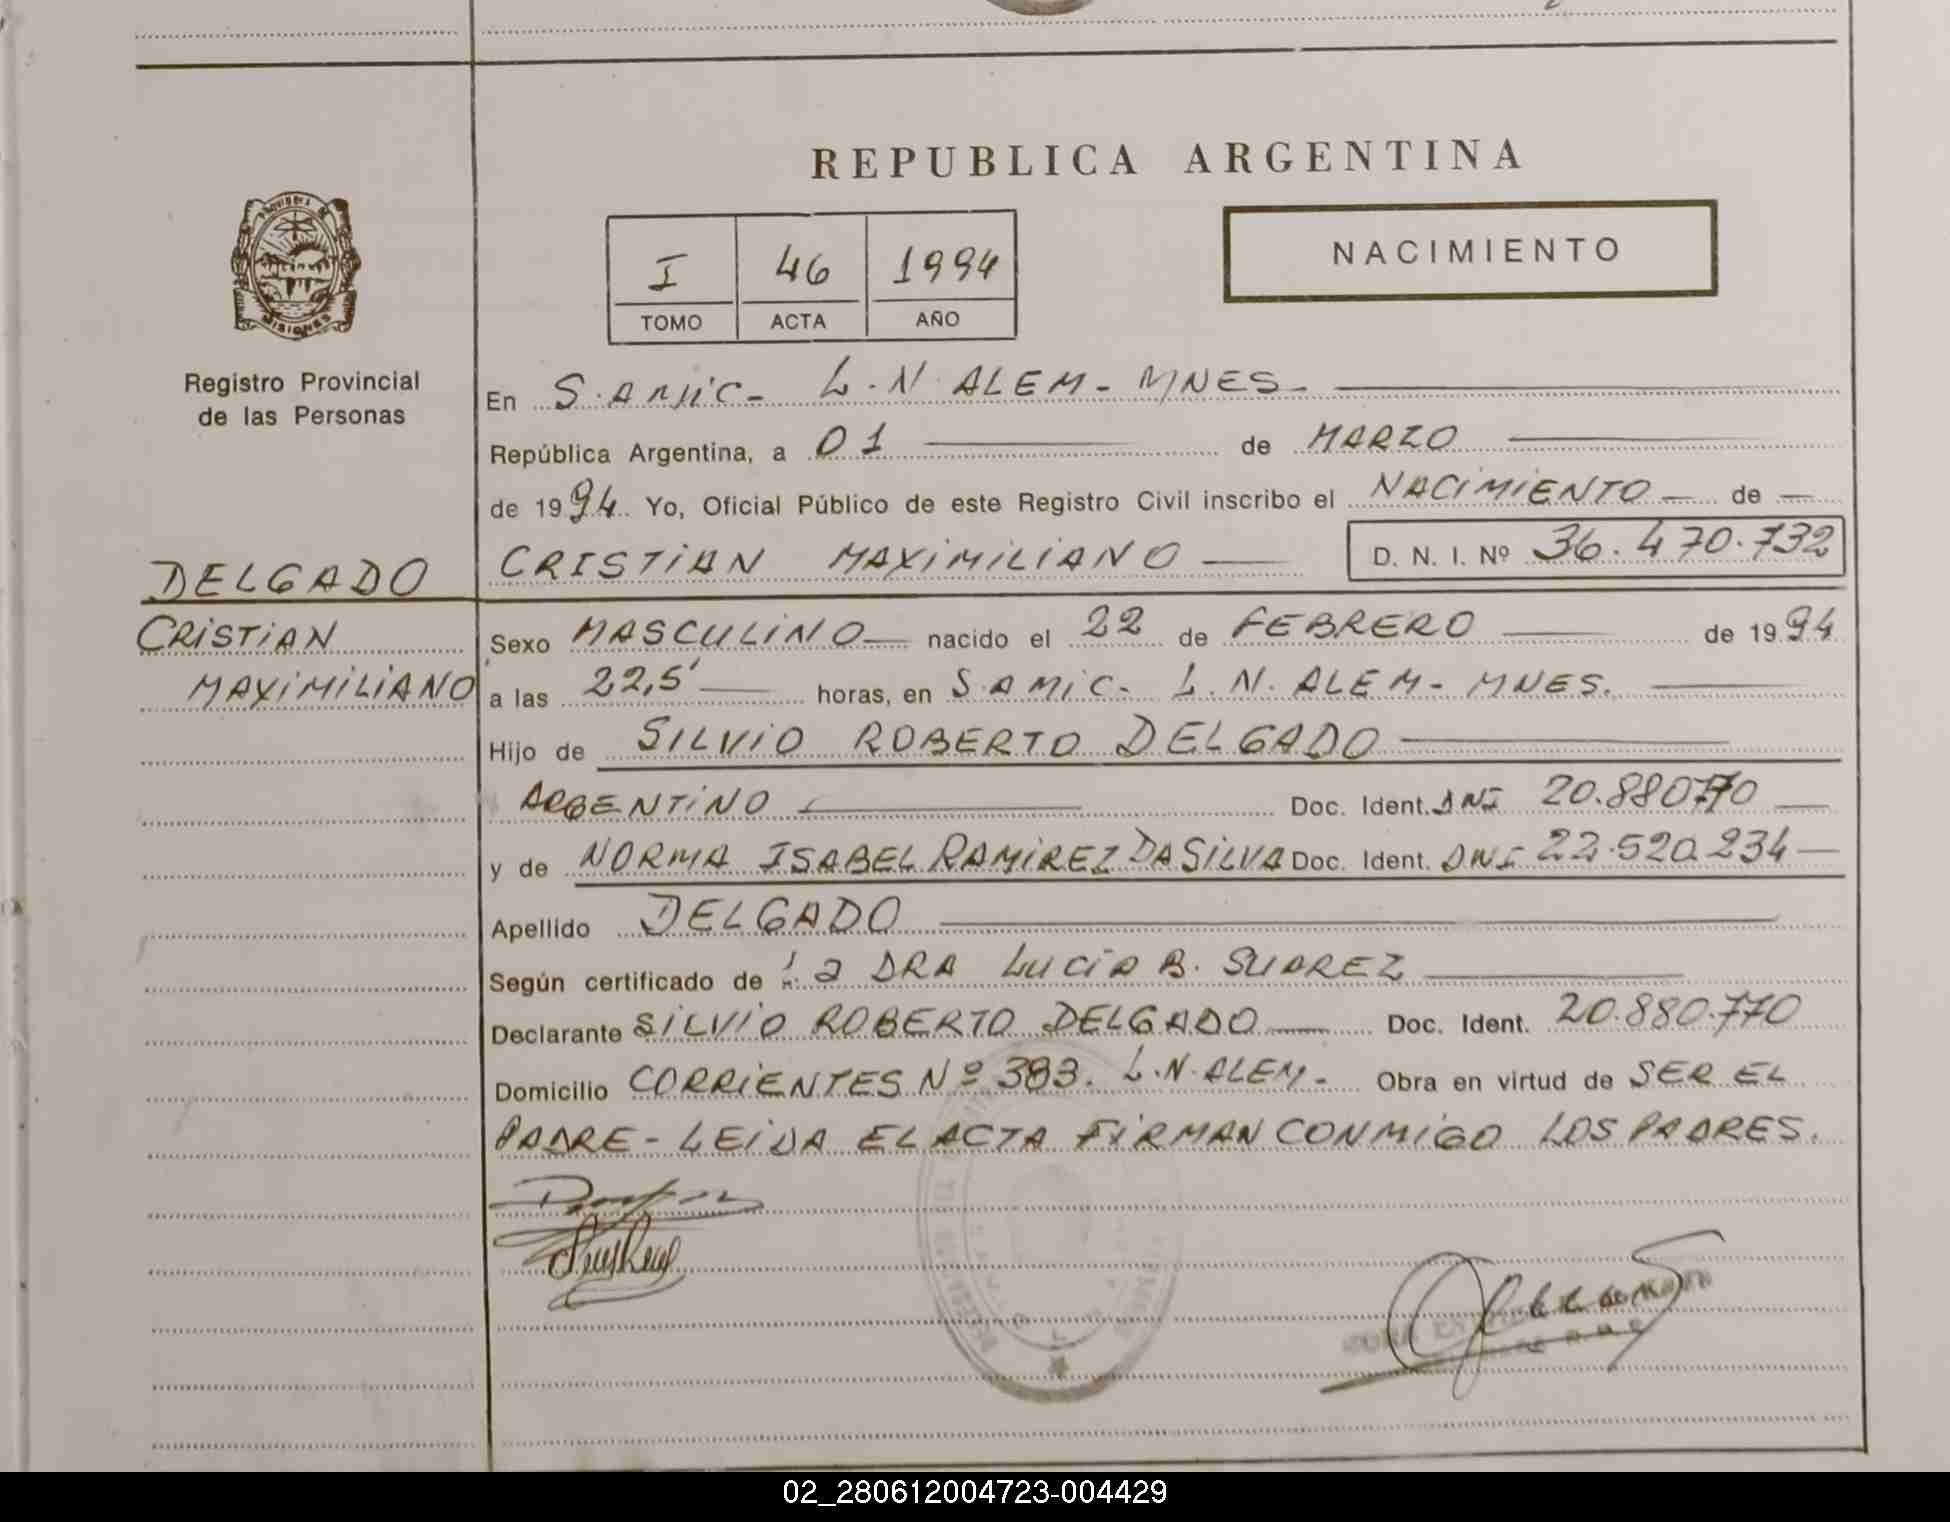 REPUBLICA ARGENTINA
PROVINCIA DE
MISIONES
Registro Provincial
de las Personas
I 46 1994
TOMO ACTA AÑO
NACIMIENTO
En S.AMIC- L.N.ALEM- MNES-
República Argentina, a 01 de MARZO
de 1994 Yo, Oficial Público de este Registro Civil inscribo el NACIMIENTO de
DELGADO
CRISTIAN MAXIMILIANO D. N. I. Nº 36.470.732
CRISTIAN
MAXIMILIANO
Sexo MASCULINO nacido el 22 de FEBRERO de 1994
a las 22,5' horas, en S.AMIC- L.N.ALEM- MNES.
Hijo de SILVIO ROBERTO DELGADO
ARGENTINO Doc. Ident. DNI 20.880770
y de NORMA ISABEL RAMIREZ DA SILVA Doc. Ident. DNI 22.520.234
Apellido DELGADO
Según certificado de la DRA LUCIA B. SUAREZ
Declarante SILVIO ROBERTO DELGADO Doc. Ident. 20.880.770
Domicilio CORRIENTES Nº 383. L.N.ALEM- Obra en virtud de SER EL
PADRE- LEIDA EL ACTA FIRMAN CONMIGO LOS PADRES.
02_280612004723-004429